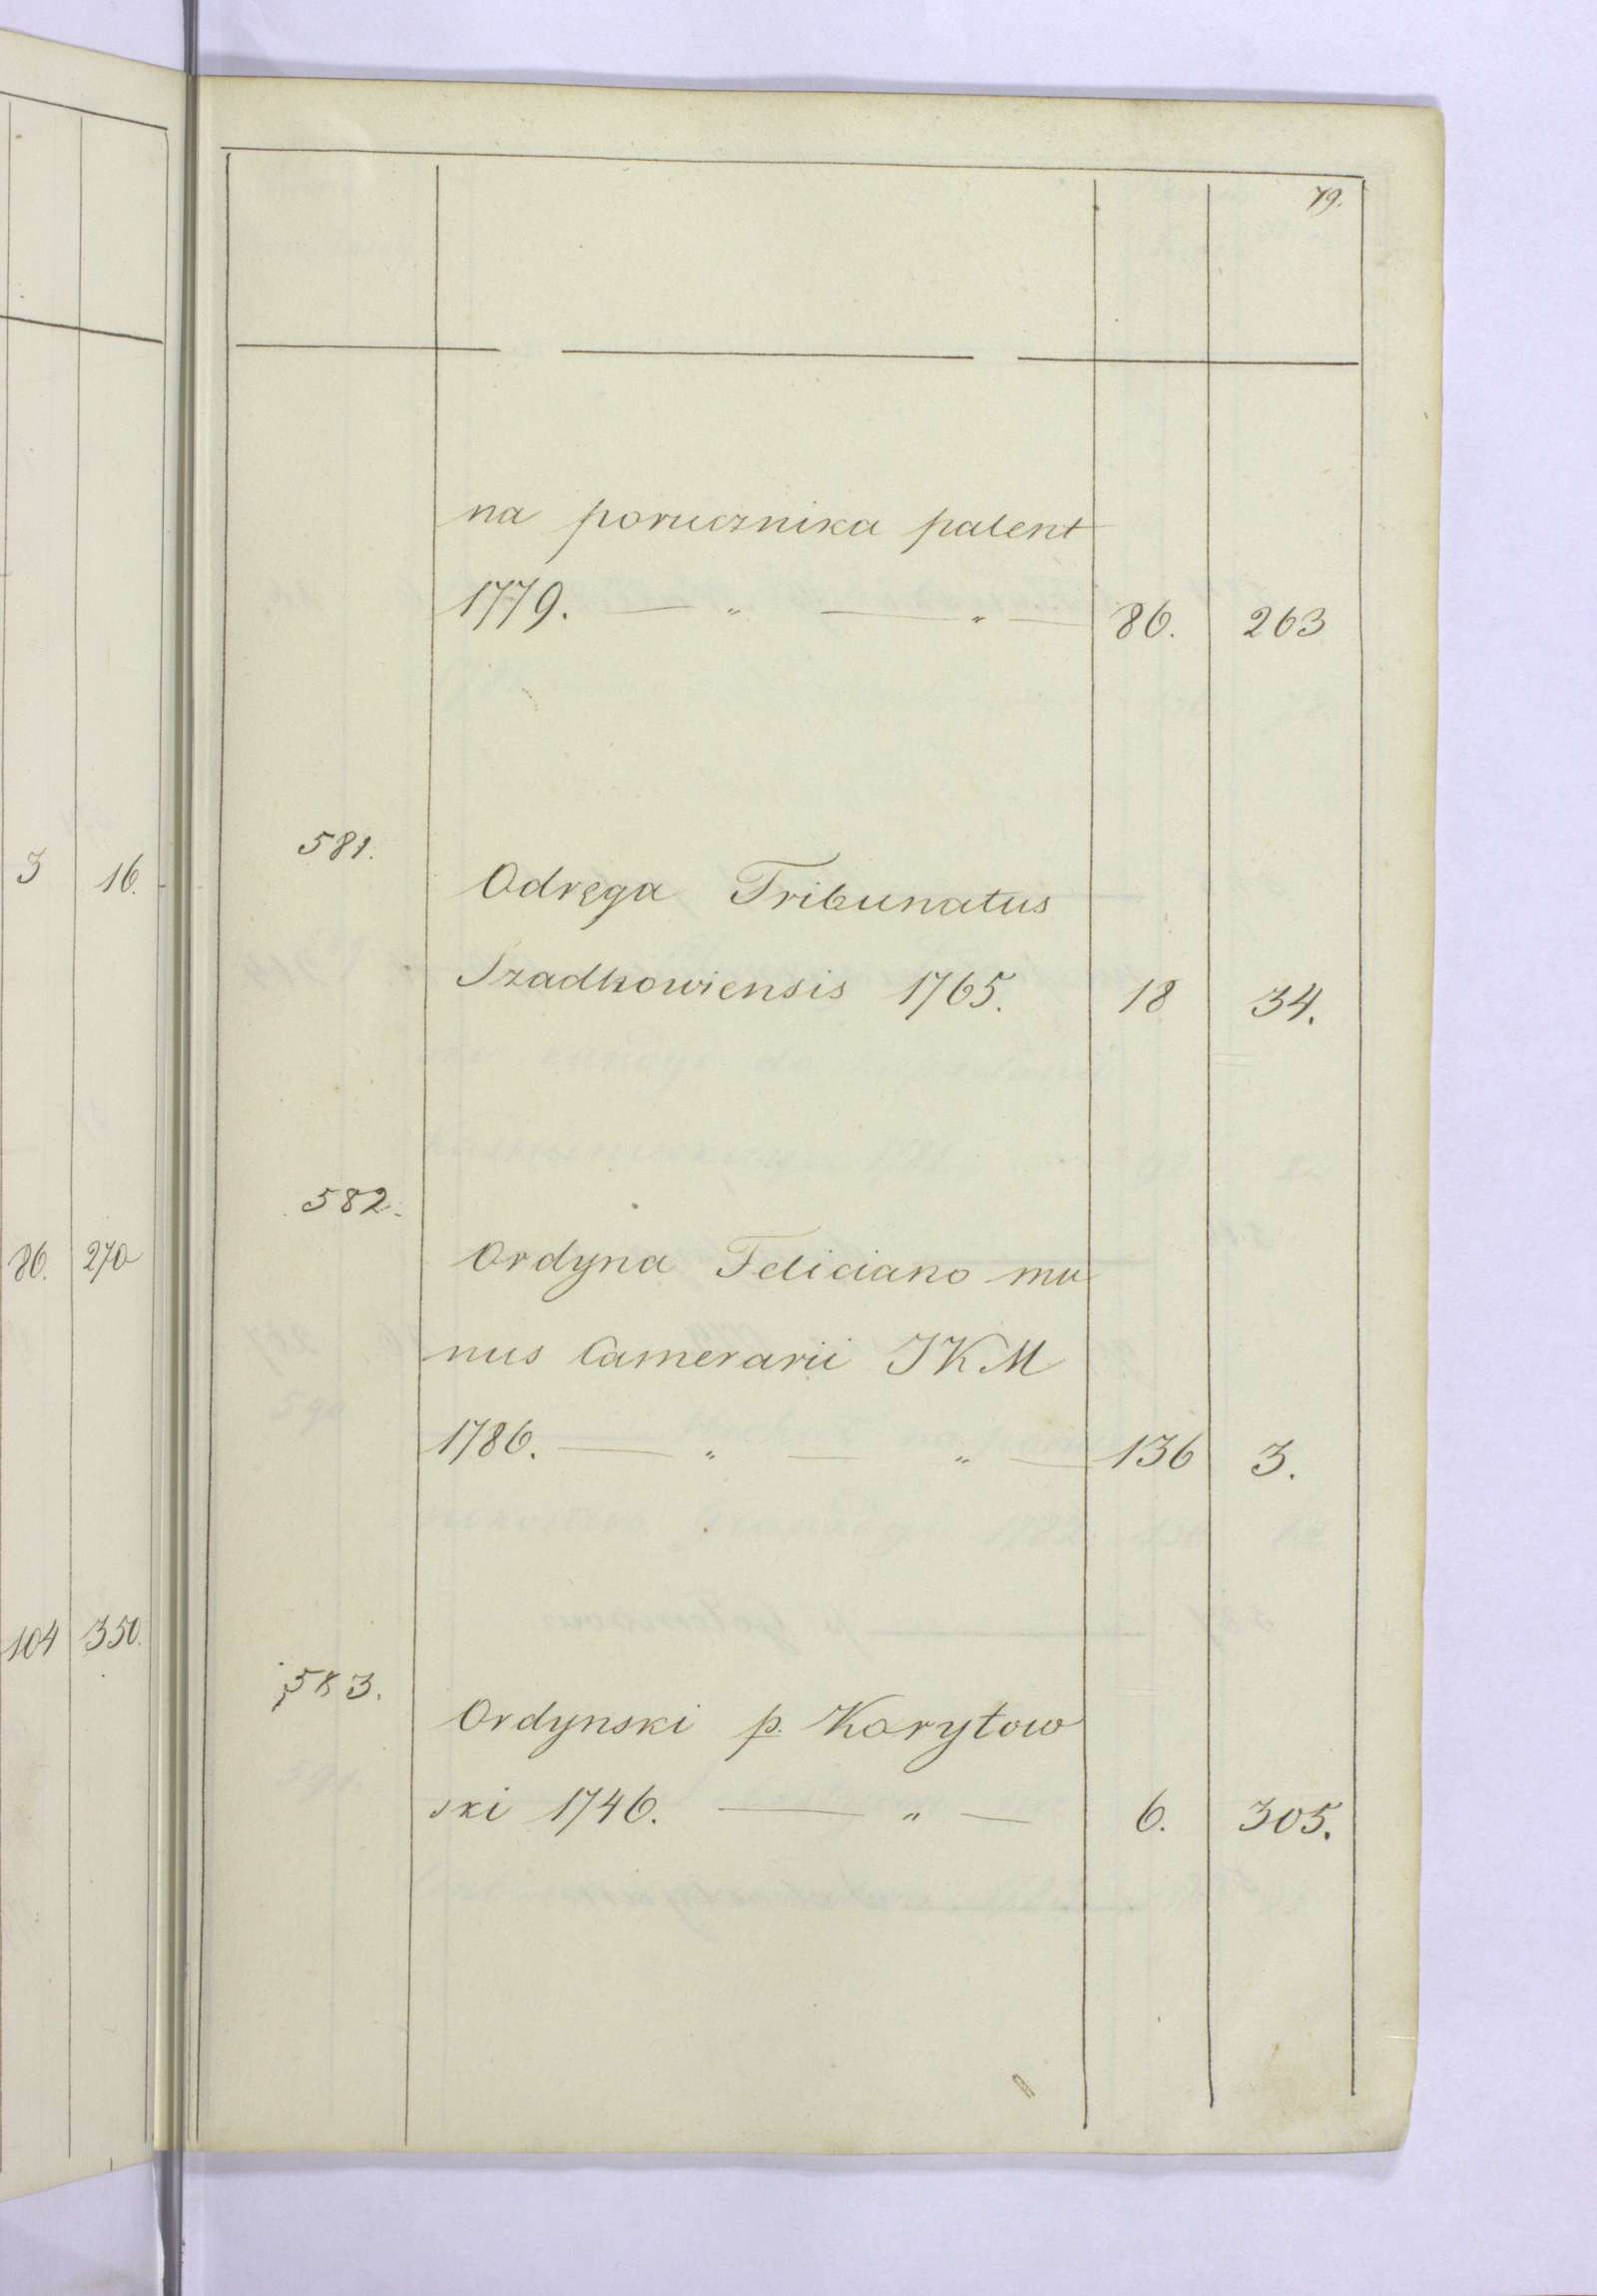 79.
na porucznika patent
1779. — „ — „ — 86. 263
581.
Odręga Tribunatus
Szadkowiensis 1765. 18 34.
582.
Ordyna Feliciano mu
nus Camerarii JKM
1786. — „ — „ — 136 3.
583.
Ordynski p. Korytow
ski 1746. — „ — 6. 305.
3 16.
86. 270
104 350.